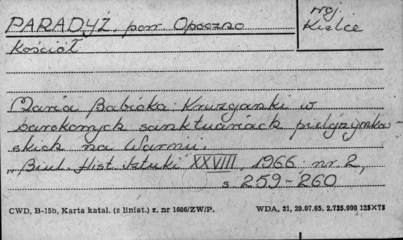 PARADYŻ, pow. Opoczno
woj. Kielce
Kościół
Maria Babicka: Krużganki w
barokowych sanktuariach pielgrzymko-
wskich na Warmii.
"Biul. Hist. Sztuki XXVIII, 1966 nr 2,
s. 259-260
CWD, B-15b, Karta katal. (z liniat.) z. nr 1606/ZW/P. WDA, 31, 20.07.65. 2.735.000 125X75